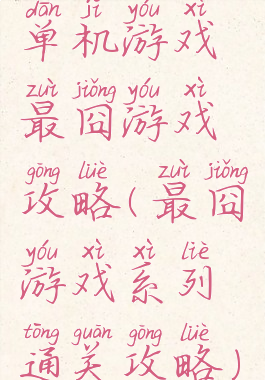 dān jī yóu xì
单机游戏
zuì jiǒng yóu xì
最囧游戏
gōng lüè zuì jiǒng
攻略(最囧
yóu xì xì liè
游戏系列
tōng guān gōng lüè
通关攻略)